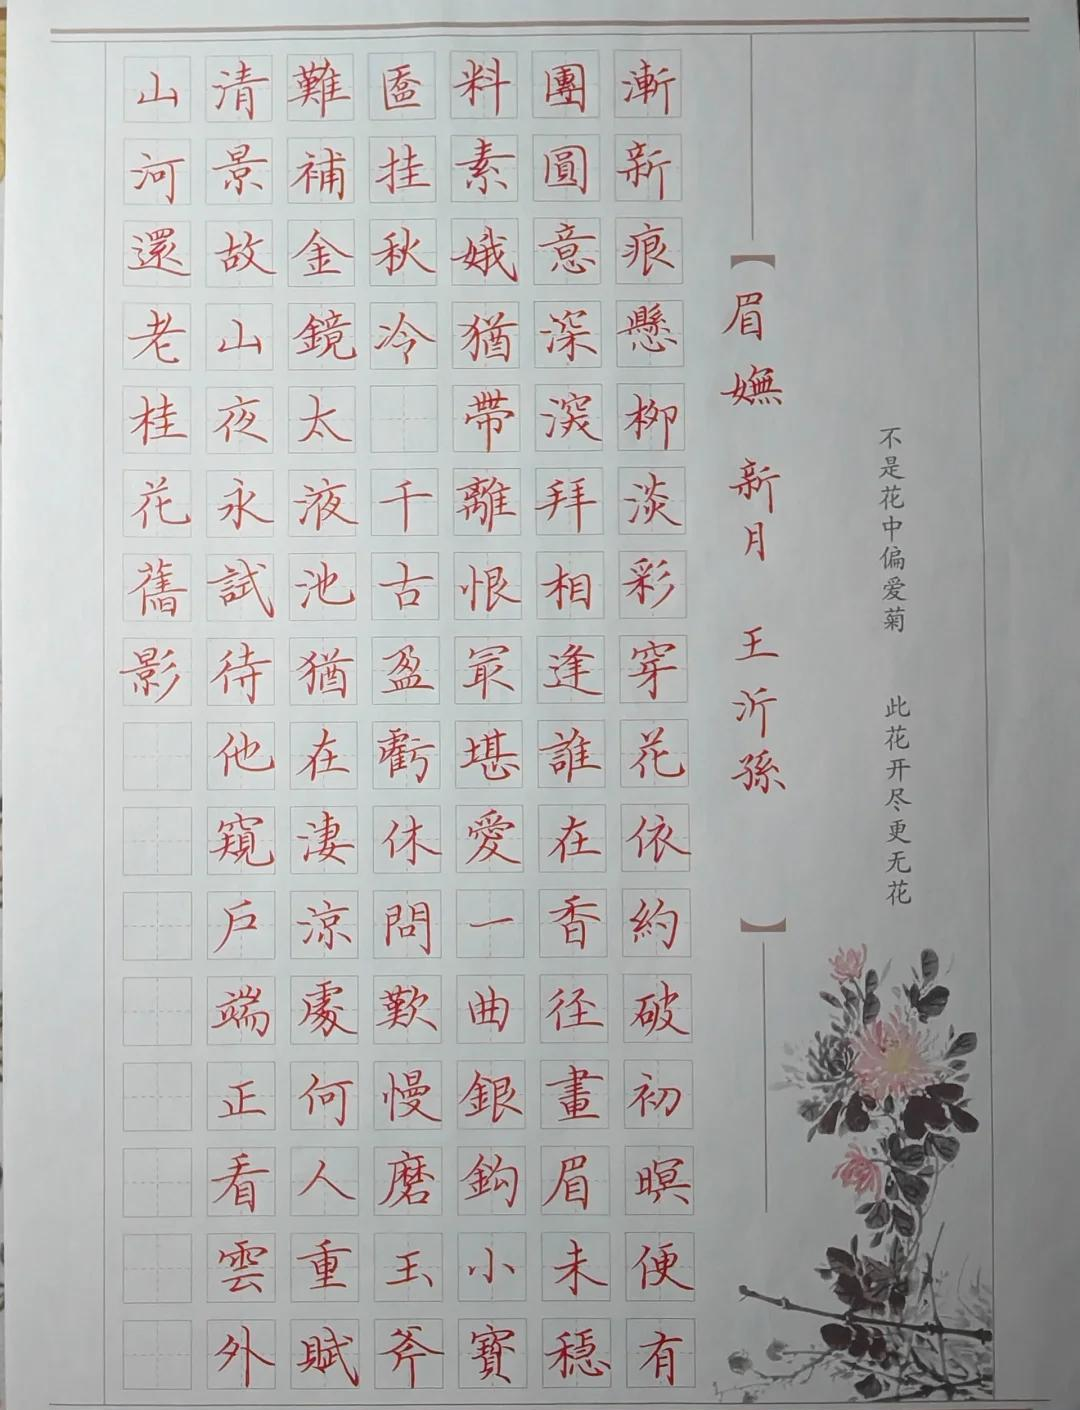 不是花中偏爱菊 此花开尽更无花
【眉嫵 新月 王沂孫】
漸新痕懸柳淡彩穿花依約破初暝便有
團圓意深深拜相逢誰在香径畫眉未穩
料素娥猶帶離恨最堪愛一曲銀鈎小寳
匳挂秋冷 千古盈虧休問歎慢磨玉斧
難補金鏡太液池猶在淒涼處何人重賦
清景故山夜永試待他窺戶端正看雲外
山河還老桂花舊影